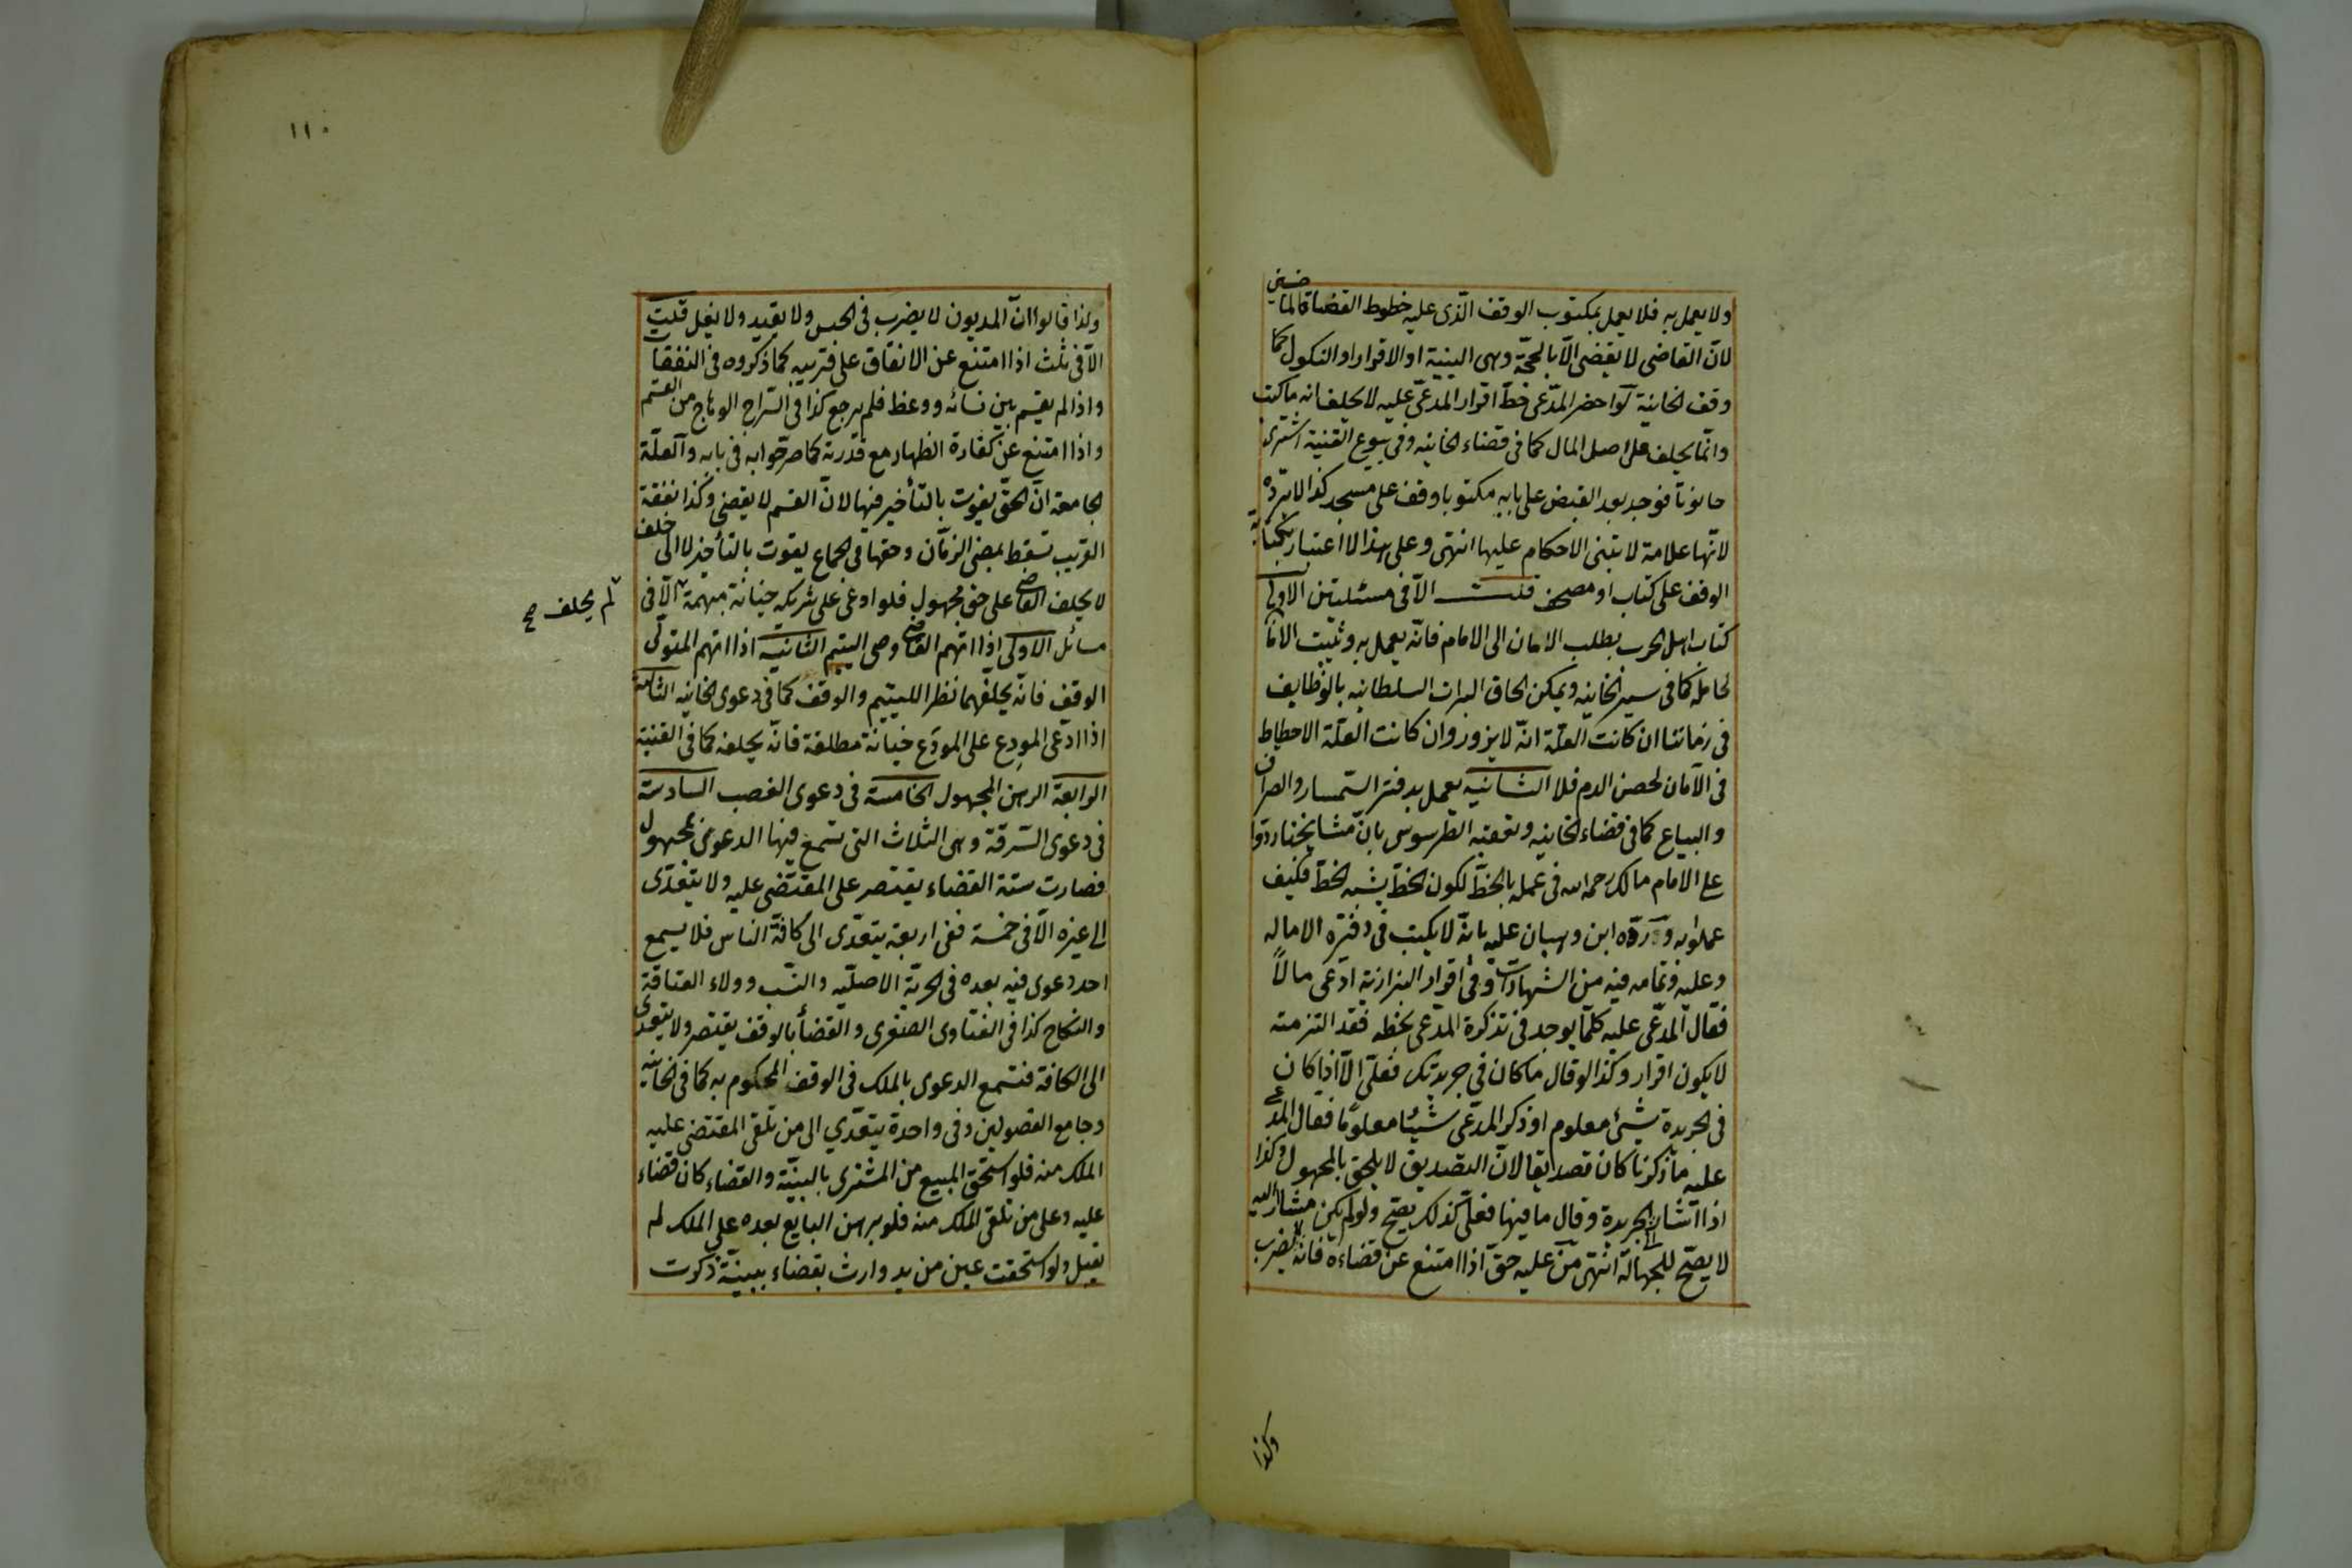 ولا يعمل به فلا يعمل بمكتوب الوقف الذى عليه خطوط القضاة الماضين
لانّ القاضى لا يقضى الّا بالحجّة وهى البينة او الاقرار او النكول كما
وقف الخانية لو احضر المدّعى خطّ اقرار المدعّى عليه لا يحلف انه ما كتب
وانّما يحلف على اصل المال كما فى قضاء الخانيه وفى بيوع القنية اشترى
حانوتا فوجد بعد القبض على بابه مكتوبا وقف على مسجد كذا لا يردّه
لانّها علامة لا تبنى الاحكام عليها انتهى وعلى هذا لا اعتبار بكتابة
الوقف على كتاب او مصحف قلت الّا فى مسئلتين الاولى
كتاب اهل الحرب بطلب الامان الى الامام فانّه يعمل به وثبت الامان
لحامله كما فى سير الخانيه ويمكن الحاق البراآت السلطانيه بالوظايف
فى زماننا ان كانت العلّة انّه لا يزور وان كانت العلّة الاحطياط
فى الآمان لحصن الدم فلا الثانيه يعمل بدفتر السّمسار والصراف
والبياع كما فى قضاء الخانيه وتعقبه الطرسوسى بانّ مشايخنا ردّوا
على الامام مالك رحمه الله فى عمله بالخطّ لكون الخطّ يشبه الخطّ فكيف
عملوا به وردّه ابن وهبان عليه بانّه لا يكتب فى دفتره الا ماله
وعليه وتمامه فيه من الشهادات وفى اقرار البزازية ادّعى مالاً
فقال المدّعى عليه كلّما يوجد فى تذكرة المدّعى بخطه فقد التزمته
لا يكون اقرار وكذا لو قال ما كان فى جريدتك فعلىّ الّا اذا كان
فى الجريدة شئ معلوم او ذكر المدّعى شيئا معلومًا فقال المدعى
عليه ما ذكرنا كان تصديقا لانّ التصديق لا يلحق بالمجهول وكذا
اذا اشار الى الجريدة وقال ما فيها فعلىّ كذلك يصّح ولو لم يكن مشار اليه
لا يصّح للجهالة انتهى من عليه حقّ اذا امتنع عن قضاءه فانّه لا يضرب
وكذا
١١٠
ولذا قالوا انّ المديون لا يضرب فى الحبس ولا يقيد ولا يغل قلت
الّا فى ثلث اذا امتنع عن الانفاق على قريبه كما ذكروه فى النفقات
واذا لم يقسم بين نسائه ووعظ فلم يرجع كذا فى السّراج الوهاج من القسم
واذا امتنع عن كفّارة الظهار مع قدرته كما صرّحوا به فى بابه والعلّة
الجامعة انّ الحقّ يفوت بالتأخير فيها لانّ القسم لا يقضى وكذا نفقة
القريب تسقط بمضى الزمان وحقها فى الجماع يفوت بالتأخير لا الى خلف
لا يحلف القاضى على حق مجهول فلو ادعى على شريكه خيانة مبهمة الّا فى
لم يحلف صح
مسائل الاولى اذا اتهم القاضى وصى اليتيم الثانيه اذا اتهم المتولّى
الوقف فانّه يحلفهما نظرا لليتيم والوقف كما فى دعوى الخانيه الثالثة
اذا ادّعى المودِع على المودَع خيانة مطلقة فانّه يحلفه كما فى القنية
الرابعة الرهن المجهول الخامسة فى دعوى الغصب السادسة
فى دعوى السّرقة وهى الثلاث التى تسمع فيها الدعوى بمجهول
فصارت ستة القضاء يقتصر على المقتضى عليه ولا يتعدّى
الى غيره الّا فى خمسة ففى اربعة يتعدّى الى كافّة الناس فلا يسمع
احد دعوى فيه بعده فى الحرية الاصليّه والنسب وولاء العتاقة
والنكاح كذا فى الفتاوى الصغرى والقضأ بالوقف يقتصر ولا يتعدى
الى الكافة فتسمع الدعوى بالملك فى الوقف المحكوم به كما فى الخانية
وجامع الفصولين وفى واحدة يتعدّي الى من تلقى المقتضى عليه
الملك منه فلو استحق المبيع من المشترى بالبينّة والقضاء كان قضاء
عليه وعلى من تلقى الملك منه فلو برهن البايع بعده على الملك لم
تقبل ولو استحقت عين من يد وارث بقضاء ببينّة ذكرت